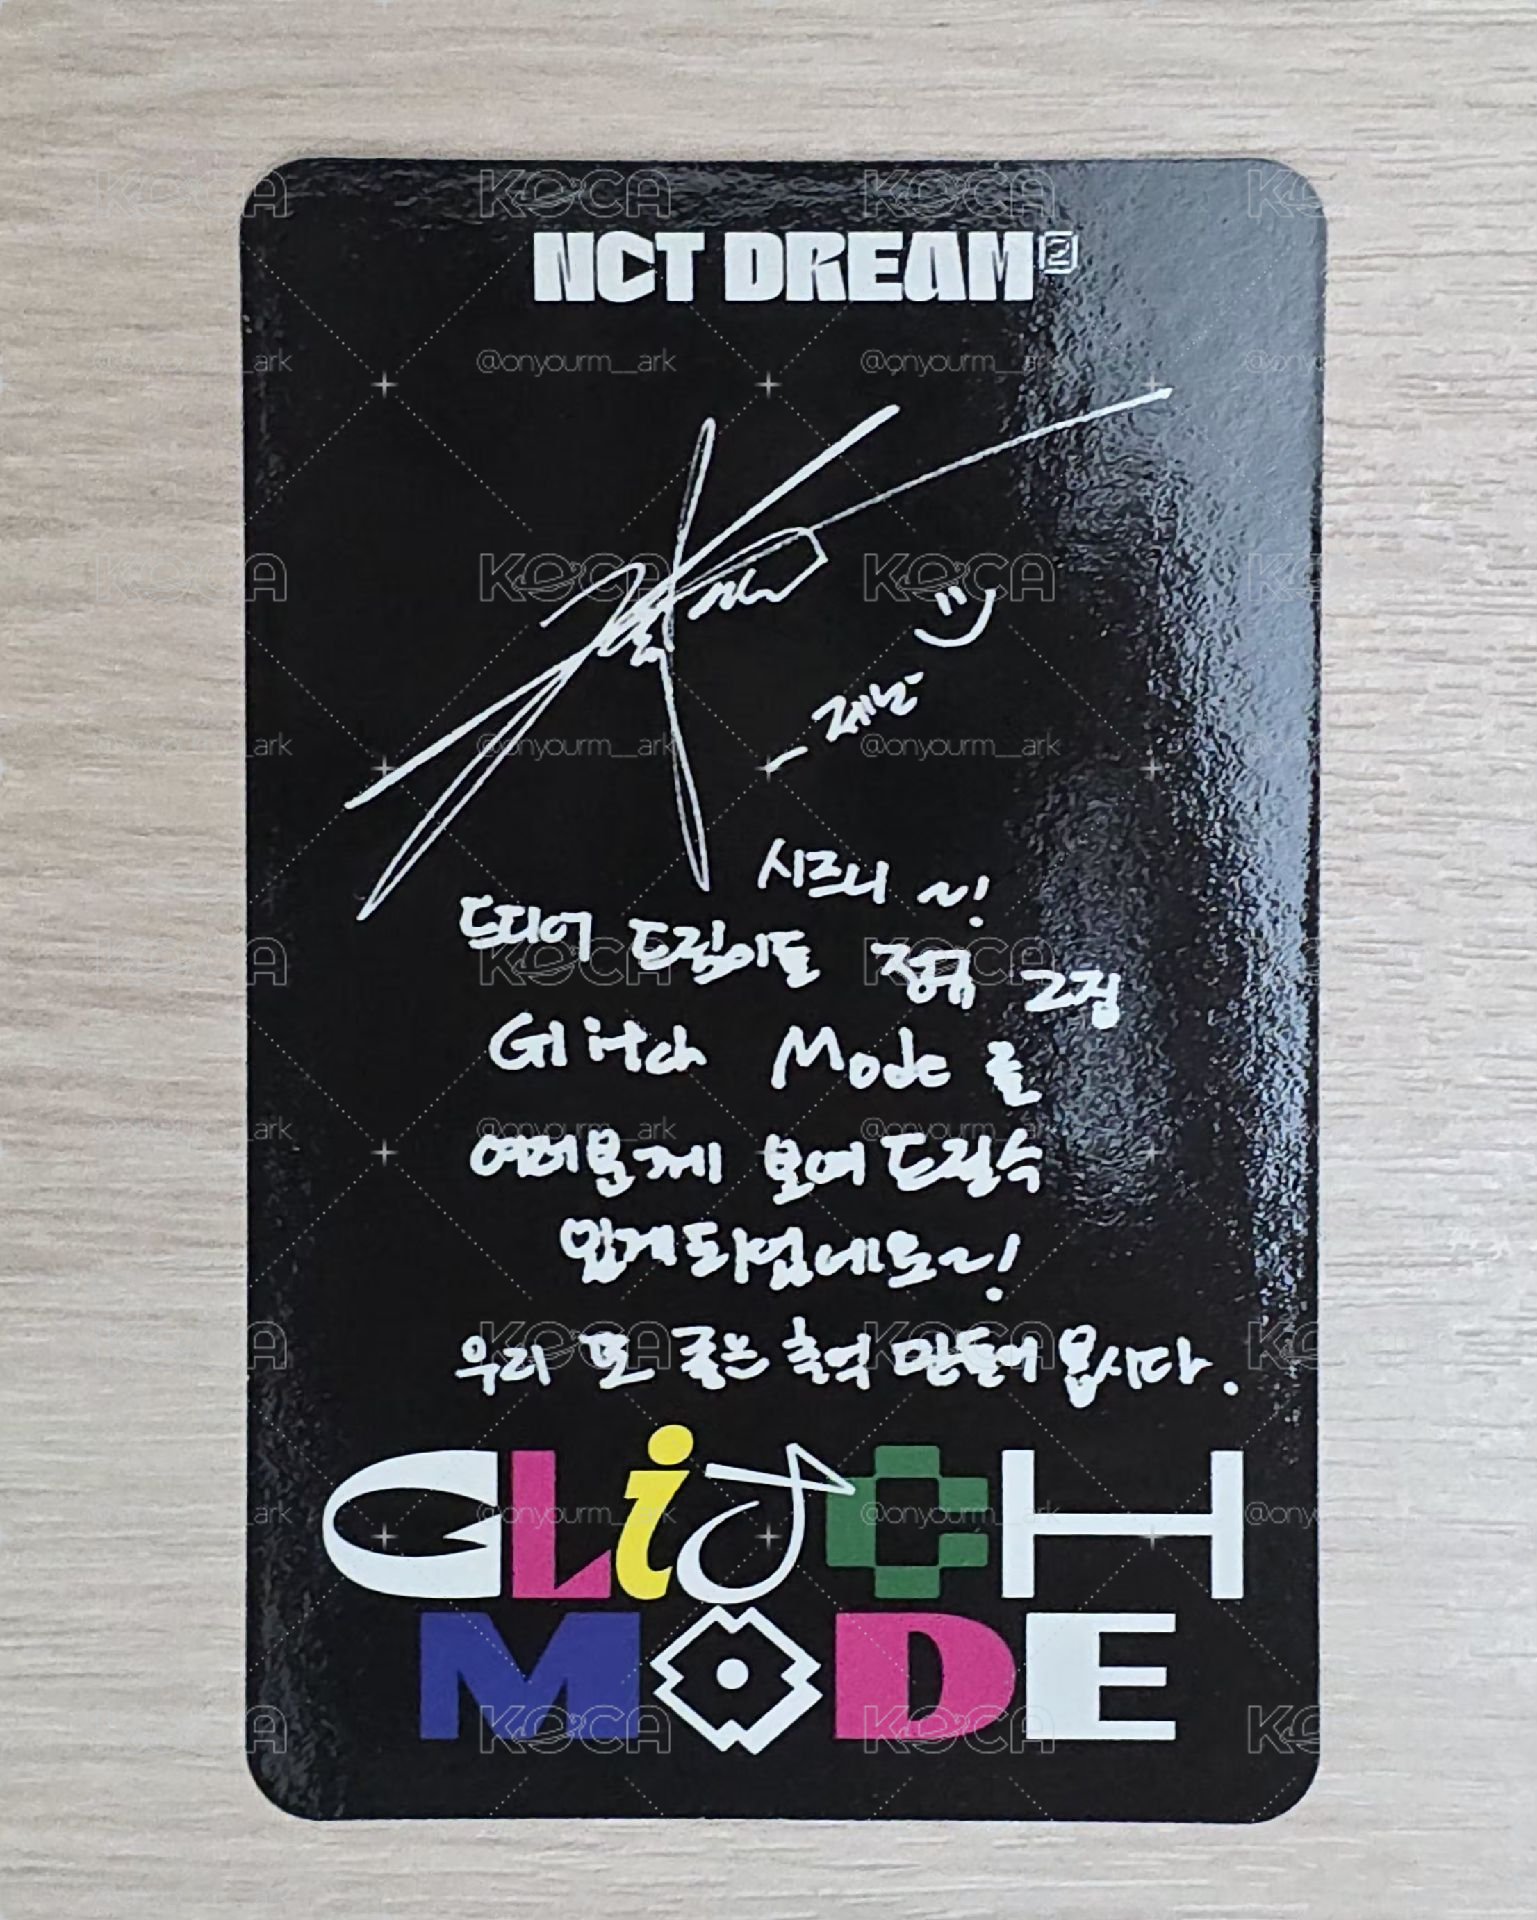 NCT DREAM
- 제노
시즈니 ~!
드디어 드림이들 정규 2집
Glitch Mode 를
여러분게 보여 드릴수
있게 되었네요~!
우리 또 좋은 추억 만들어 봅시다.
GLiTCH
MODE
KOCA
@onyourm__ark